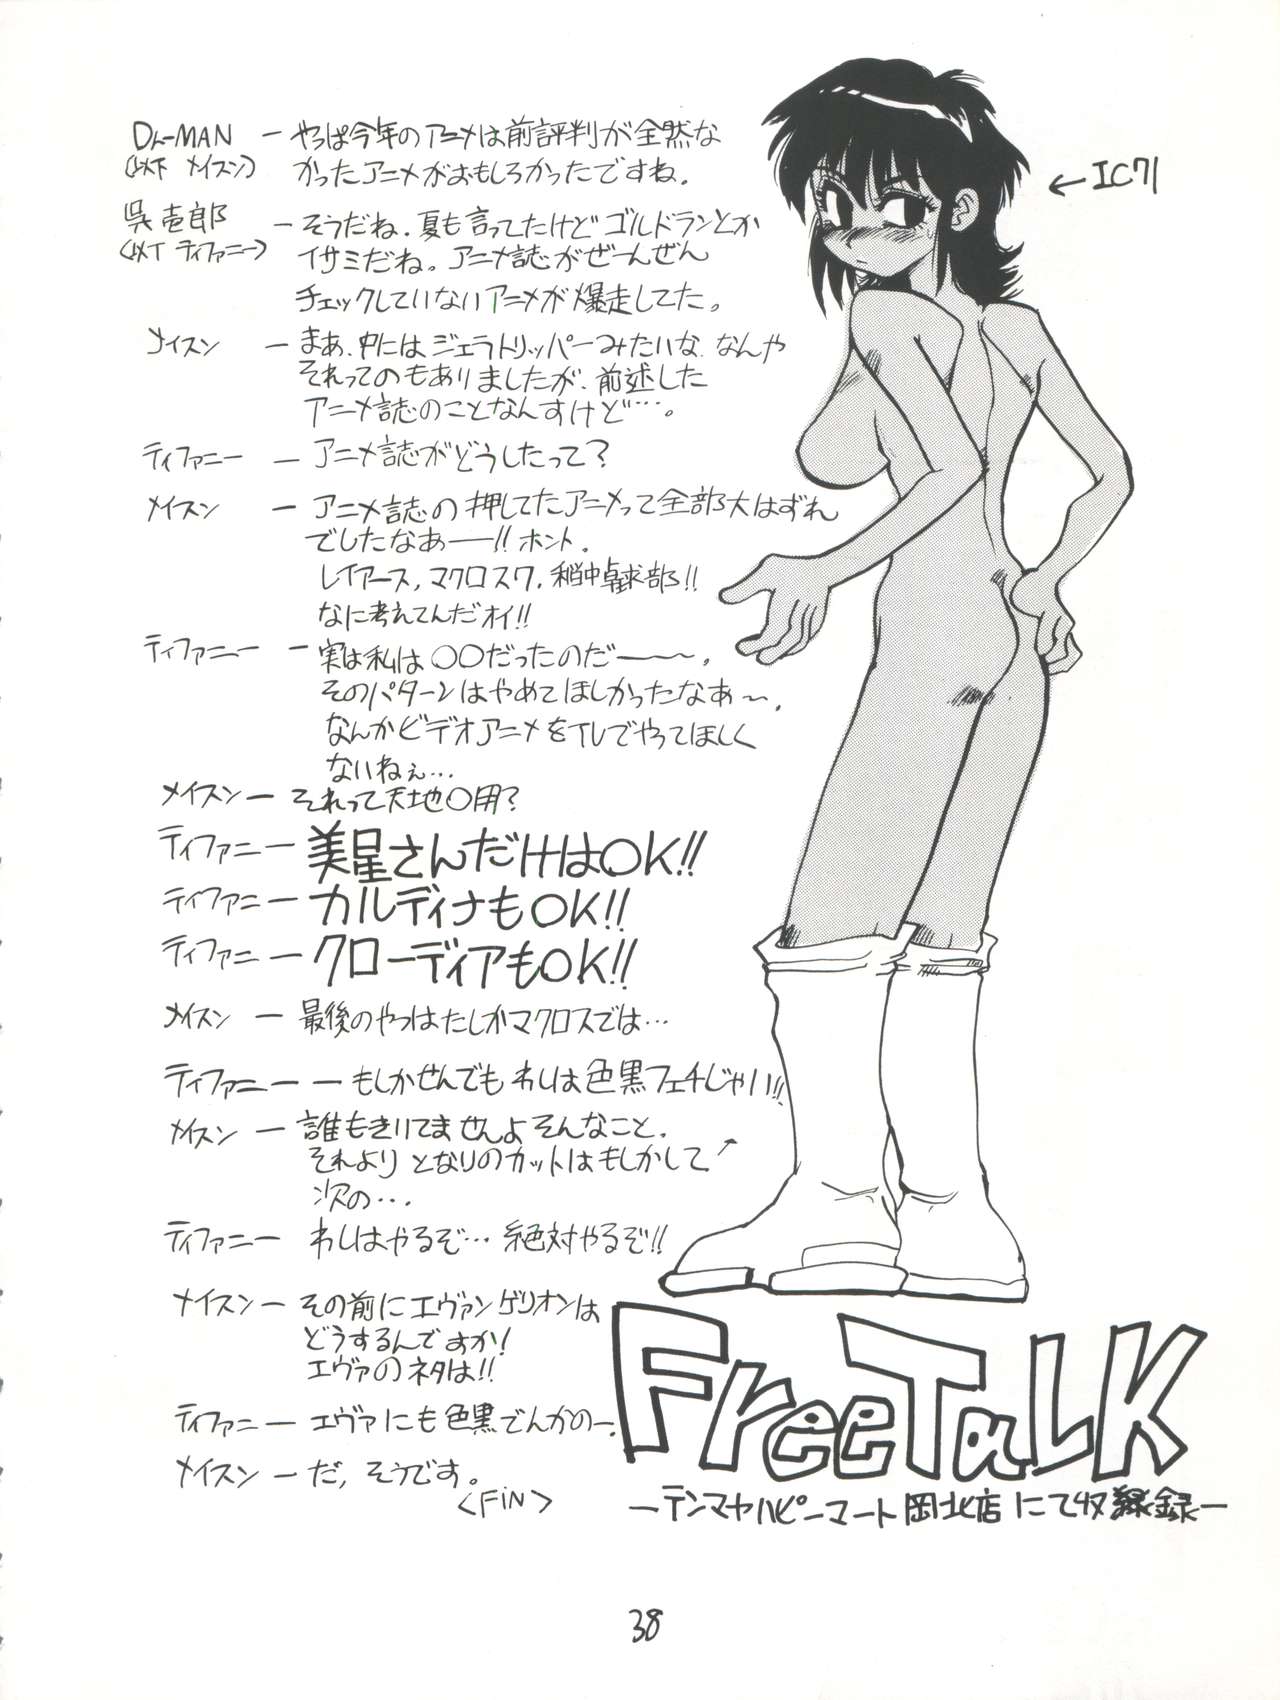 Dr-MAN - やっぱ今年のアニメは前評判が全然な
(以下 メイスン) かったアニメがおもしろかったですね。
呉壱郎 - そうだね、夏も言ってたけどゴルドランとか
(以下 ティファニー) イサミだね。アニメ誌がぜーんぜん
チェックしていないアニメが爆走してた。
メイスン - まぁ、中にはジェラトリッパーみたいな、なんや
それってのもありましたが、前述した
アニメ誌のことなんすけど…。
ティファニー - アニメ誌がどうしたって?
メイスン - アニメ誌の押してたアニメって全部大はずれ
でしたなあ――!! ホント。
レイアース、マクロス7、稲中卓球部!!
なに考えてんだオイ!!
ティファニー - 実は私は〇〇だったのだ――〜。
そのパターンはやめてほしかったなあ〜。
なんかビデオアニメをTVでやってほしく
ないねぇ…
メイスン - それって天地〇用?
ティファニー - 美星さんだけはOK!!
ティファニー - カルディナもOK!!
ティファニー - クローディアもOK!!
メイスン - 最後のやつはたしかマクロスでは…
ティファニー - もしかせんでもわしは色黒フェチじゃい!!
メイスン - 誰もきいてませんよそんなこと。
それよりとなりのカットはもしかして↗
次の…。
ティファニー わしはやるぞ… 絶対やるぞ!!
メイスン - その前にエヴァンゲリオンは
どうするんですか!
エヴァのネタは!!
ティファニー - エヴァにも色黒でんかの―。
メイスン - だ、そうです。
<FiN>
← IC71
FreeTaLK
―テンマヤハピーマート岡北店にて収録―
38